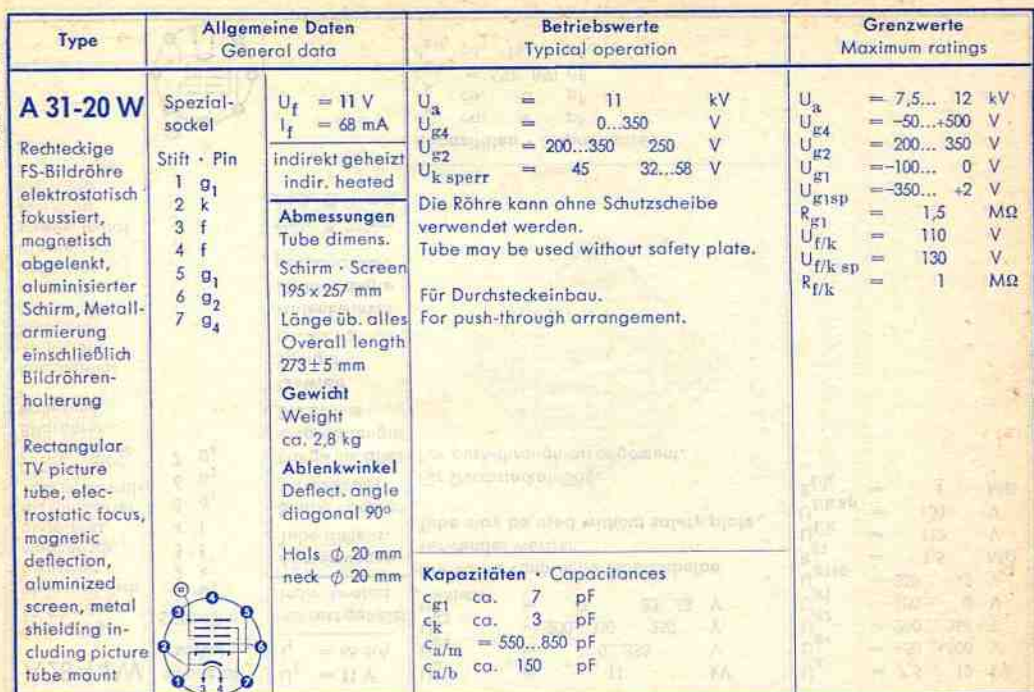 Type
Allgemeine Daten
General data
Betriebswerte
Typical operation
Grenzwerte
Maximum ratings
A 31-20 W
Rechteckige
FS-Bildröhre
elektrostatisch
fokussiert,
magnetisch
abgelenkt,
aluminisierter
Schirm, Metall-
armierung
einschließlich
Bildröhren-
halterung
Rectangular
TV picture
tube, elec-
trostatic focus,
magnetic
deflection,
aluminized
screen, metal
shielding in-
cluding picture
tube mount
Spezial-
sockel
Stift · Pin
1 g1
2 k
3 f
4 f
5 g1
6 g2
7 g4
Uf = 11 V
If = 68 mA
indirekt geheizt
indir. heated
Abmessungen
Tube dimens.
Schirm · Screen
195 x 257 mm
Länge üb. alles
Overall length
273±5 mm
Gewicht
Weight
ca. 2,8 kg
Ablenkwinkel
Deflect. angle
diagonal 90°
Hals ϕ 20 mm
neck ϕ 20 mm
Ua = 11 kV
Ug4 = 0...350 V
Ug2 = 200...350 250 V
Uk sperr = 45 32...58 V
Die Röhre kann ohne Schutzscheibe
verwendet werden.
Tube may be used without safety plate.
Für Durchsteckeinbau.
For push-through arrangement.
Kapazitäten · Capacitances
cg1 ca. 7 pF
ck ca. 3 pF
ca/m = 550...850 pF
ca/b ca. 150 pF
Ua = 7,5... 12 kV
Ug4 = –50...+500 V
Ug2 = 200... 350 V
Ug1 = –100... 0 V
Ug1sp = –350... +2 V
Rg1 = 1,5 MΩ
Uf/k = 110 V
Uf/k sp = 130 V
Rf/k = 1 MΩ
5
4
6
2
6
1
7
3 4